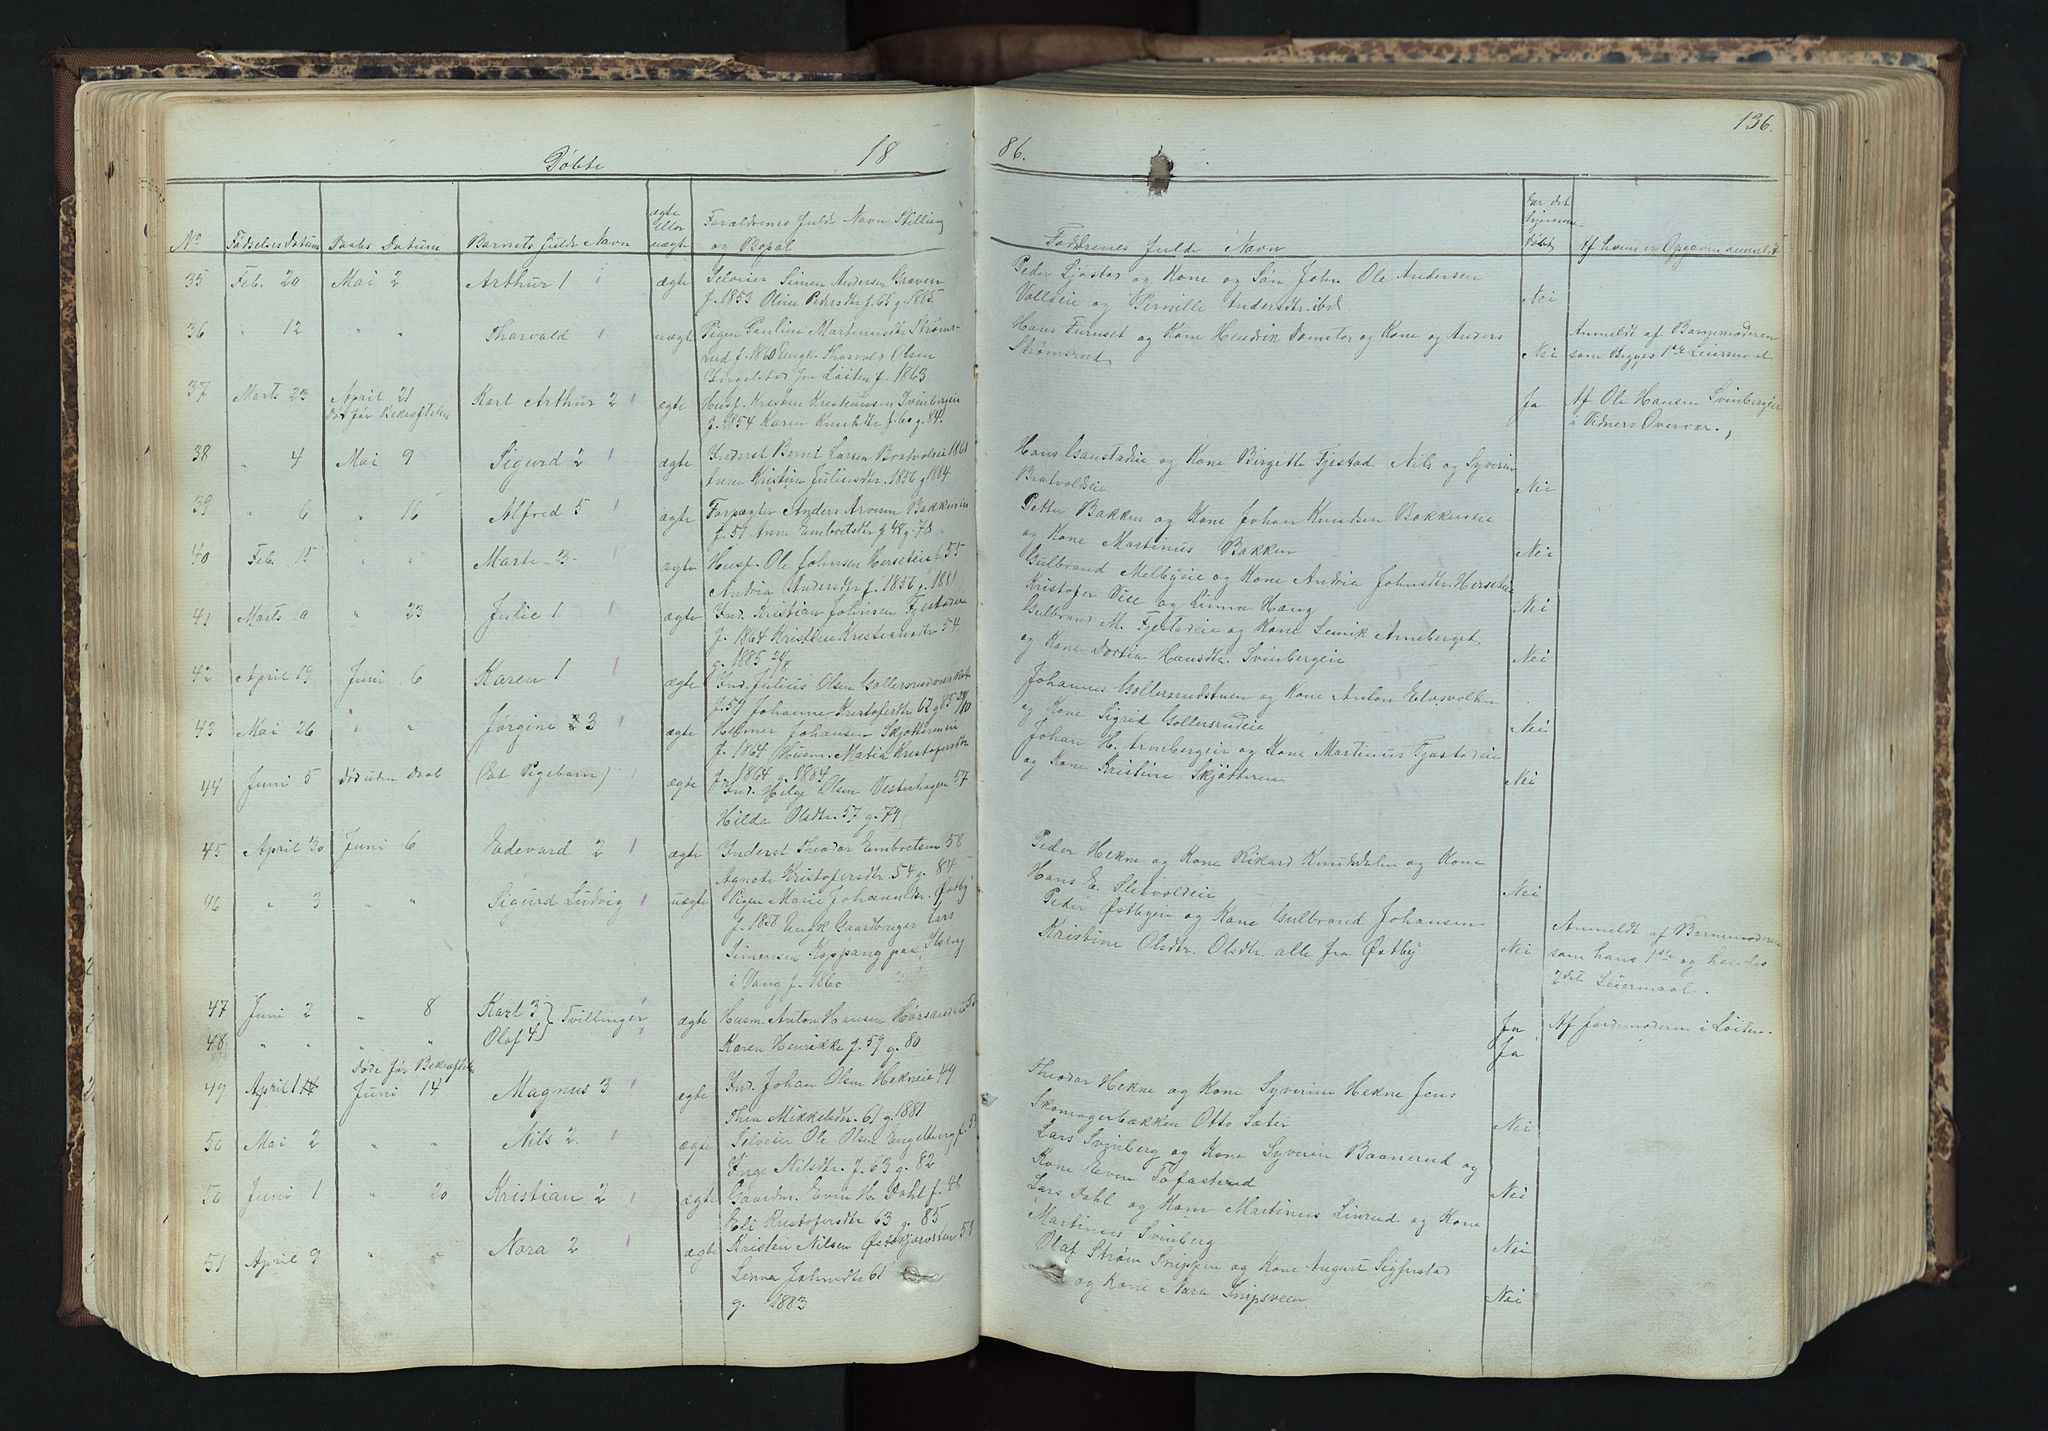 136.
Døbte 18 86.
No Fødselse Datum Daabs Datum Barnets fulde Navn ægte Eller uægte Forældrenes fulde Navn Stilling og Bopæl Faddrenes fulde Navn Døbt Af hvem er Opgaven anmeldt
35 Feb. 20 Mai 2 Arthur 1 ægte Selveier Simen Andersen Graven Peder Sjøstad og Kone og Søn Johan Ole Andersen
f. 1853 Oline Pedersdtr f. 65 g. 1885 og Pernille Andersdtr. ibd Nei
36 " 12 " " Thorvald uægte Pigen Pauline Martinusdtr Strøms- Hans Furuset og Kone Hendrik Domstad og Kone og Anders Anmeldt af Barnemoderen
rud f. 1860 Ungk. Thorvald Olsen Strømsrud Nei som Begges 1ste Leiermaal
Ingelstad fra Løiten f. 1863
37 Marts 23 April 21 Karl Arthur 2 ægte Husf. Kristen Kristiansen Svinbergeie Ja Af Ole Hansen Svinbergeie
Død før Bekræftelsen f. 1854 Karen Knudsdtr f. 60 g. 84 i Vidners Overvær.
38 " 4 Mai 9 Sigurd 2 ægte Inderst Bernt Larsen Bratvoldeie 1861 Hans Gaustadeie og Kone Birgitte Fjestad Nils og Syverin
Anne Kristine Juliusdtr. 1856 g 1884 Bratvoldeie Nei
39 " 6 " 16 Alfred 5 ægte Forpagter Anders Arvesen Bakkeneie Petter Bakken og Kone Johan Knudsen Bakkeneie
f. 51 Anne Embretsdtr f 48 g. 78 og Kone Martinus Bakken Nei
40 Feb. 15 " " Marte 3 ægte Husf. Ole Johnsen Herseteie f 55 Gulbrand Melbyeie og Kone Andria Johnsdtr. Herset
Andria Andersdtr f. 1856 g. 1881 Kristofer Vee og Haug Nei
41 Marts 9 " 23 Julie 1 ægte Ind. Kristian Johnsen Fjestadeie Gulbrand M. Fjestadeie og Kone Arneberget
f. 1864 Kristine Kristiansdtr 54 og Kone Dortia Hansdtr. Svinbergeie Nei
g. 1885
42 April 19 Juni 6 Karen 1 ægte Ind. Julius Olsen Gollersrud Johannes Gollersrudstuen og Kone Anton Eidsvolken
f. 59 Johanne Kristofersdtr 62 g 85 og Kone Sigrid Gollersrudeie Nei
43 Mai 26 " " Jørgine 3 ægte Helmer Johansen Skjøtteren Johan H. Arnebergeie og Kone Martinus Fjestadeie
f. 1864 Husm. Matia Kristofersdtr og Kone Kristine Skjøtteren Nei
f. 1864 g. 1884
44 Juni 5 Død uden Daab (Et Pigebarn) ægte Ind. Helge Olsen Vesterhagen 57
Hilda Olsdtr. 57 g. 79
45 April 30 Juni 6 Edevard 2 ægte Inderst Theodor Embretsen 58 Peder Hekne og Kone Rikard Knudsdalen og Kone
Agnete Kristofersdtr. 54 g. 84 Hans E. Sletvoldeie Nei
46 " 3 " " Sigurd Ludvig uægte Pigen Marie Johannesdtr. Østby Peder Østbyeie og Kone Gulbrand Johansen Anmeldt af Barnemoderen
f. 1858 Ungk Gaardbruger Lars Kristine Olsdtr. Olsdtr. alle fra Østby Nei som hans 1ste og hendes
Simensen Koppang paa 2det Leiermaal.
i Vang f. 1860
47 Juni 2 " 8 Karl 3 Tvillinger ægte Husm. Anton Hansen Hørsandeie 55 Ja Af Jordemoderen i Løiten
48 " " " " Olaf 4 Karen Henrikke f. 59 g. 80 Ja
Døde før Bekræftelsen
49 April 14 Juni 14 Magnus 3 ægte Ind. Johan Olsen Hekneie 49 Theodor Hekne og Kone Syverine Hekne Jens
Thea Mikkelsdtr. 61 g. 1881 Skomagerbækken Otto Sæter Nei
50 Mai 2 " " Nils 2. ægte Selveier Ole Olsen Engelberg Lars Svinberg og Kone Syverin Baanerud og
Inge Nilsdtr. f. 63 g. 82 Kone Even Tofastrud Nei
50 Juni 1 " 20 Kristian 2 ægte Gaardm. Even H. Dahl f. 48 Lars Dahl og Kone Martinus Linrud og Kone
Eli Kristofersdtr 63 g. 85 Martinus Svinberg Nei
51 April 9 " " Nora 2 ægte Kristen Nilsen 51 Olaf Strøm Snippen og Kone August
Lenna Johnsdtr 61 og Kone Nora Snipsveen Nei
g. 1883